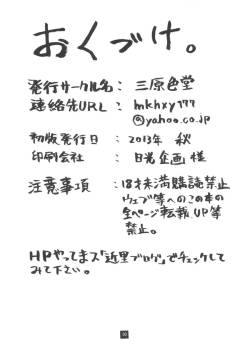 おくづけ。
発行サークル名： 三原色堂
連絡先URL： mkhxy177
@yahoo.co.jp
初版発行日： 2013年 秋
印刷会社： 日光企画 様
注意事項：18才未満購読禁止
ウェブ等へのこの本の
全ページ転載UP等
禁止。
HPやってまス「近里ブログ」でチェックして
みて下さい。